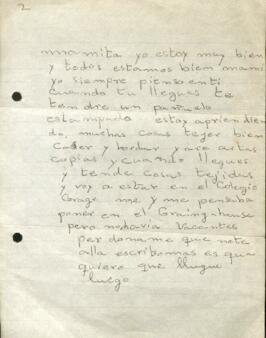 2
mamita yo estoy muy bien
y todos estamos bien mami
yo siempre pienso en ti
cuando tu llegues te
tendre un pañuelo
estampado estoy aprendien
do, muchas cosas tejer bien
coser y bordar y asre artas
copias y cuando llegues
y tende cosas tejidas
y voy a estar en el Colegio
me y me pensaba
poner en el
pero nohavia vacantes
perdoname que note
alla escribomas es que
quiero que llugue
luego